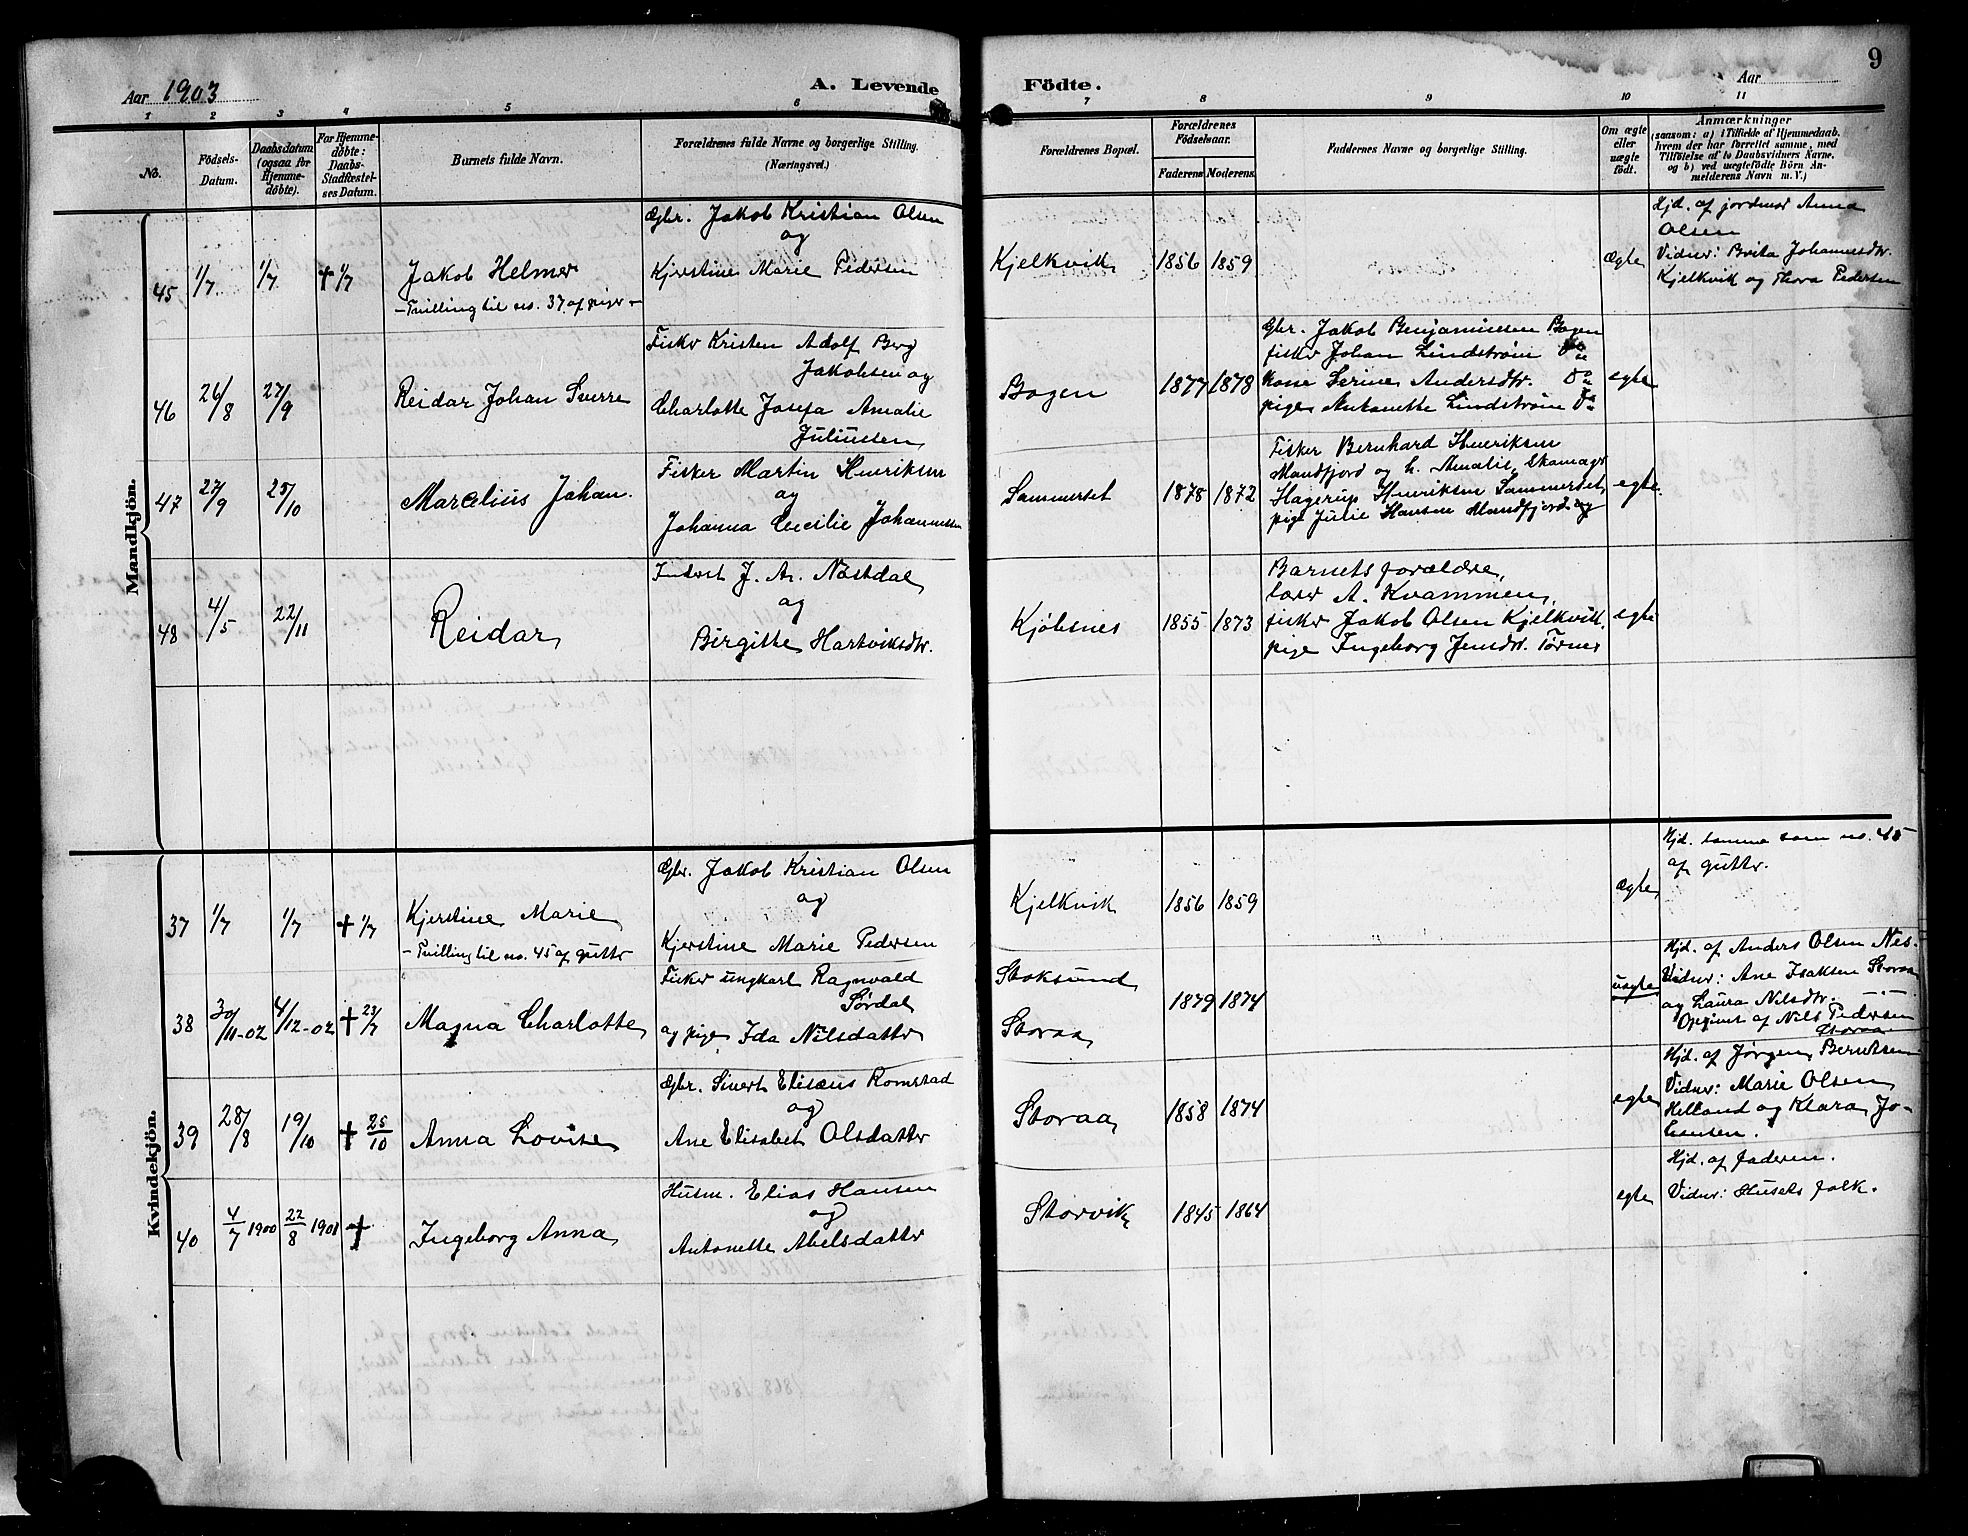 Aar 1903
A. Levende
Födte.
Aar
9
1 2 3 4 5 6 7 8 9 10 11
No.
Födsels-
Datum.
Daabsdatum
(ogsaa for
Hjemme-
döbte).
For Hjemme-
döbte:
Daabs-
Stadfæstel-
ses Datum.
Barnets fulde Navn.
Forældrenes fulde Navne og borgerlige Stilling.
(Næringsvei.)
Forældrenes Bopæl.
Forældrenes
Födselsaar.
Faderens
Moderens
Faddernes Navne og borgerlige Stilling.
Om ægte
eller
uægte
födt.
Anmærkninger
(saasom: a) i Tilfælde af Hjemmedaab.
hvem der har forrettet samme, med
Tilföielse af to Daabsvidners Navne.
og b) ved uægtefödte Börn An-
melderens Navn m. V.)
Mandkjön.
45 1/7 1/7 + 1/7
Jakob Helmer
- Tvilling til no. 37 af piger -
Gbr. Jakob Kristian Olsen
og
Kjerstine Marie Pedersen
Kjelkvik 1856 1859
ægte
Hjd. af jordmor Anna
Olsen
Vidner: Brita Johannesdtr.
Kjelkvik og Thora Pedersen
46 26/8 27/9
Reidar Johan Sverre
Fisker Kristen Adolf Berg
Jakobsen og
Charlotte Josefa Amalie
Juliussen
Bogen 1877 1878
Gbr. Jakob Benjaminsen Bogen
fisker Johan Lindstrøm do
kone Serine Andersdtr. do
pige Antonette Lindstrøm do
egte
47 27/9 25/10
Marcelius Johan.
Fisker Martin Henriksen
og
Johanna Cecilie Johannessen
Sommerset 1878 1872
Fisker Bernhard Henriksen
Mandfjord og h. Amalie,
Hagerup Henriksen Sommerset,
pige Julie Hansen Mandfjord og
egte.
48 4/5 22/11
Reidar
Inderst J. A. Nøstdal
og
Birgitte Hartviksdtr.
Kjöbsnes 1855 1873
Barnets forældre,
lærer A. Kvammen,
fisker Jakob Olsen Kjelkvik,
pige Ingeborg Jensdtr. Tørnes
egte
Kvindekjön.
37 1/7 1/7 + 1/7
Kjerstine Marie
- Tvilling til no. 45 af gutter
Gbr. Jakob Kristian Olsen
og
Kjerstine Marie Pedersen
Kjelkvik 1856 1859
ægte
Hjd. samme som no. 45
af gutter.
38 30/11-02 4/12-02 + 23/7
Magna Charlotte
Fisker ungkarl Ragnvald
Sørdal
og pige Ida Nilsdatter
Stoksund
Storaa
1879 1874
uegte
Hjd. af Anders Olsen Nes.
Vidner: Ane Isaksen Storaa
og Laura Nilsdtr. -"-
Opgivet af Nils Pedersen
Storaa
39 28/8 19/10 + 25/10
Anna Lovise
Gbr. Sivert Eliseus Romstad
og
Ane Elisabet Olsdatter
Storaa 1858 1874
egte
Hjd. af Jørgen Berntsen
Vidner: Marie Olsen
Helland og Klara Jo-
hansen.
40 4/7 1900 22/8 1901 +
Ingeborg Anna
Husm. Elias Hansen
og
Antonette Abelsdatter
Storvik 1845 1864
egte
Hjd. af faderen.
Vidner: Husets folk.